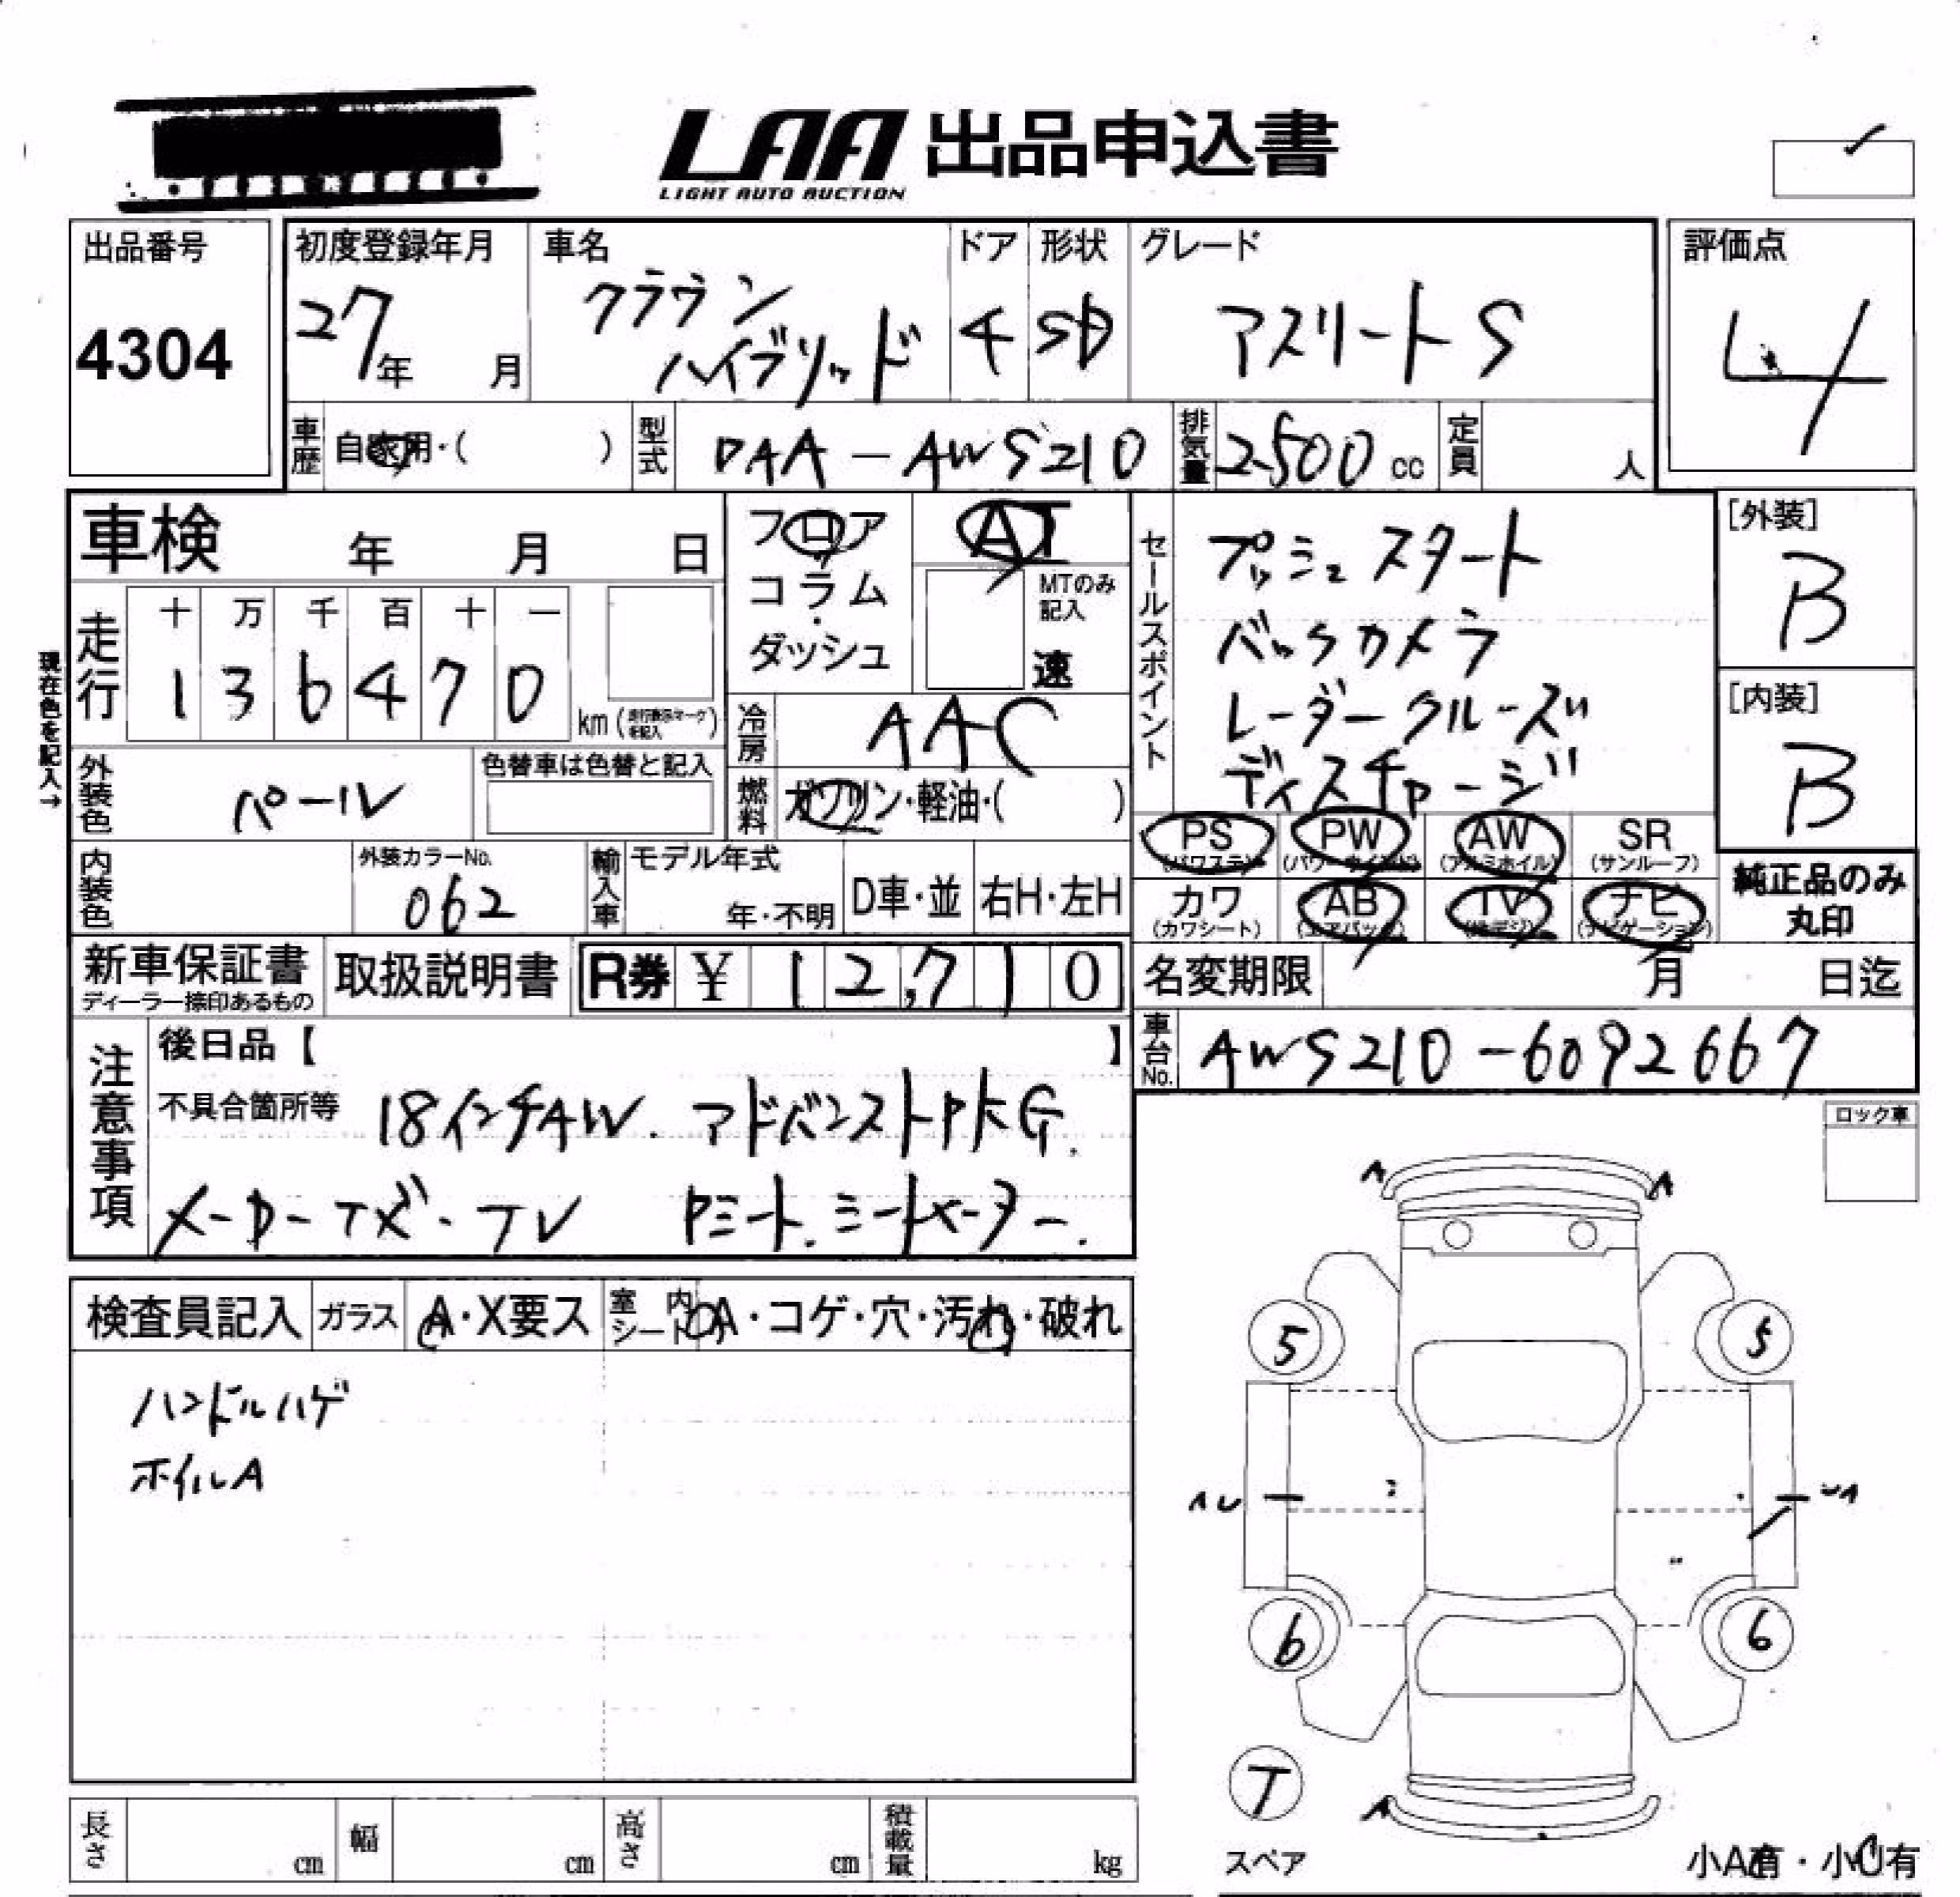 LAA 出品申込書
LIGHT AUTO AUCTION
出品番号
4304
初度登録年月
27年 月
車名
クラウン
ハイブリッド
ドア
4
形状
SD
グレード
アスリートS
評価点
4
車歴
自家用・( )
型式
DAA-AWS210
排気量
2500cc
定員
人
車検 年 月 日
フロア
コラム
・
ダッシュ
AT
MTのみ
記入
速
セールスポイント
プッシュスタート
バックカメラ
レーダークルーズ
ディスチャージ
[外装]
B
[内装]
B
現在色を記入→
走行
十 万 千 百 十 一
1 3 6 4 7 0
km
冷房
AAC
外装色
パール
色替車は色替と記入
燃料
ガソリン・軽油・( )
PS PW AW SR
(パワステ) (パワーウインド) (アルミホイル) (サンルーフ)
カワ AB TV ナビ
(カワシート) (エアバック) (地デジ) (ナビゲーション)
純正品のみ
丸印
内装色
外装カラーNo.
062
輸入車
モデル年式
年・不明
D車・並
右H・左H
新車保証書
ディーラー捺印あるもの
取扱説明書
R券 ¥ 12,710
名変期限 月 日迄
車台No.
AWS210-6092667
注意事項
後日品【 】
不具合箇所等
18インチAW. アドバンストPKG.
メーカーナビ・TV Pシート.シートヒーター.
ロック車
検査員記入
ガラス
A・X要ス
室内
シート
A・コゲ・穴・汚れ・破れ
ハンドルハゲ
ホイルA
A A
5 5
6 6
T
A
スペア
小A有・小U有
長さ cm
幅 cm
高さ cm
積載量 kg